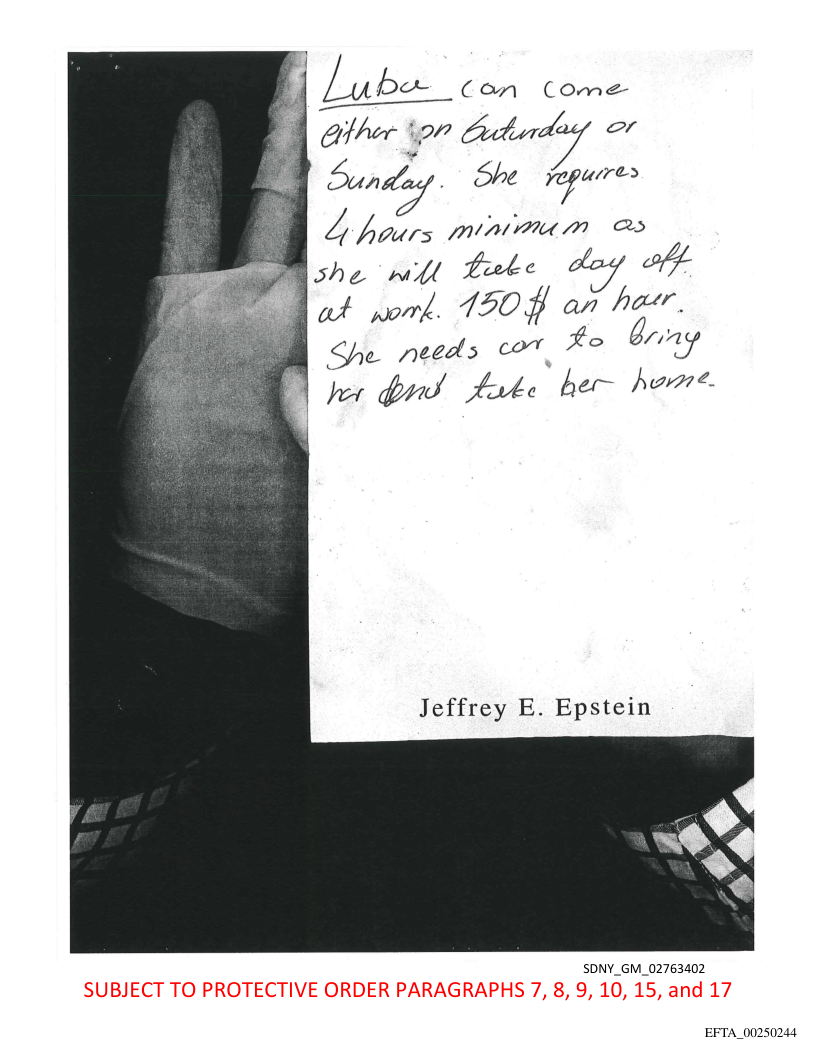 Luba can come
either on Saturday or
Sunday. She requires
4 hours minimum as
she will take day off
at work. 150$ an hour.
She needs car to bring
her and take her home.
Jeffrey E. Epstein
SDNY_GM_02763402
SUBJECT TO PROTECTIVE ORDER PARAGRAPHS 7, 8, 9, 10, 15, and 17
EFTA_00250244